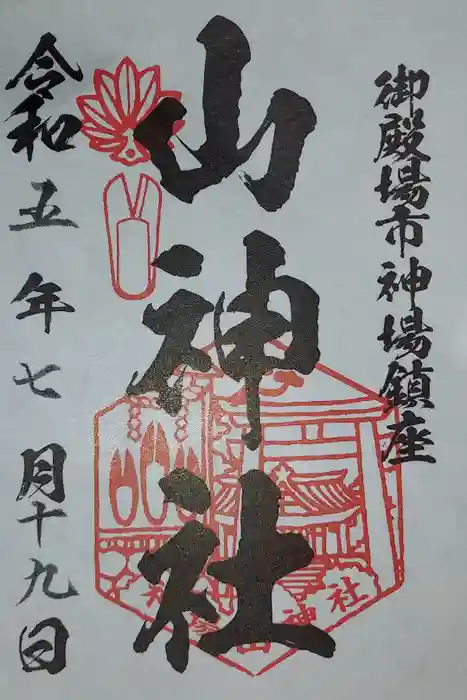 御殿場市神場鎮座
山神社
令和五年七月十九日
神場山神社